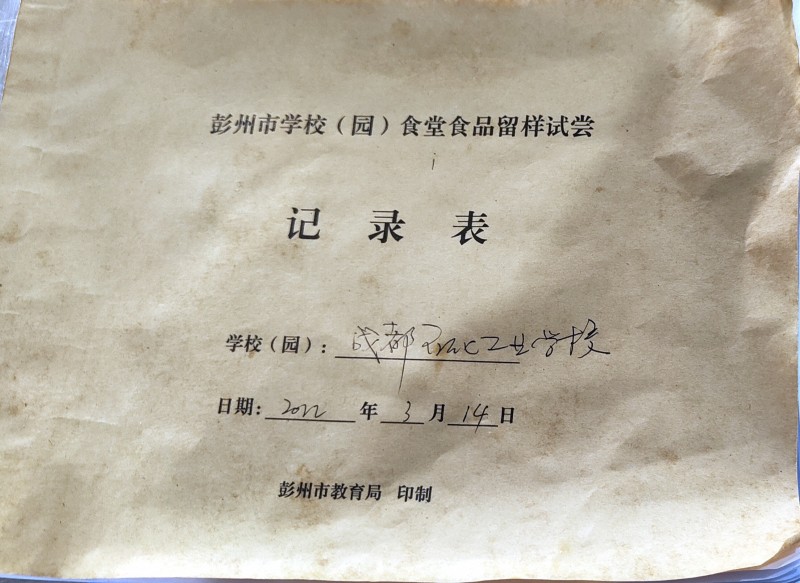 彭州市学校（园）食堂食品留样试尝
记录表
学校（园）：成都石化工业学校
日期：2022年3月14日
彭州市教育局 印制